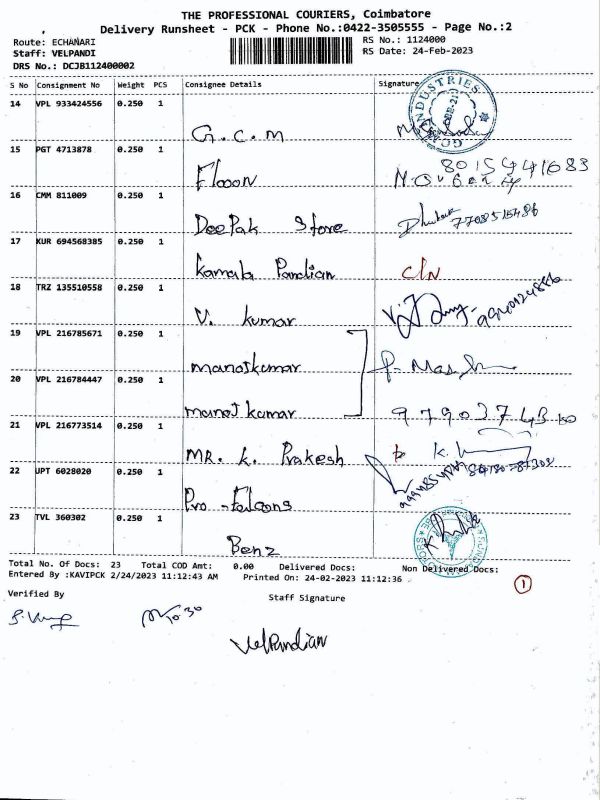 THE PROFESSIONAL COURIERS, Coimbatore
Delivery Runsheet - PCK - Phone No.:0422-3505555 - Page No.:2
Route: ECHANARI
RS No.: 1124000
Staff: VELPANDI
RS Date: 24-Feb-2023
DRS No.: DCJB112400002
S No Consignment No Weight PCS Consignee Details Signature
14 VPL 933424556 0.250 1
G.C.M
15 PGT 4713878 0.250 1
8015441683
16 CMM 811009 0.250 1
DeePak Store
17 KUR 694568385 0.250 1
Kamala Pandian C/N
18 TRZ 135510558 0.250 1
V. kumar
19 VPL 216785671 0.250 1
manojkumar
20 VPL 216784447 0.250 1
manojkumar
21 VPL 216773514 0.250 1
MR. k. Prakesh
22 UPT 6028020 0.250 1
Pro-Falcons
23 TVL 360302 0.250 1
Benz
Total No. Of Docs: 23 Total COD Amt: 0.00 Delivered Docs: Non Delivered Docs:
Entered By :KAVIPCK 2/24/2023 11:12:43 AM Printed On: 24-02-2023 11:12:36
1
Verified By
Staff Signature
10:30
VelPandian